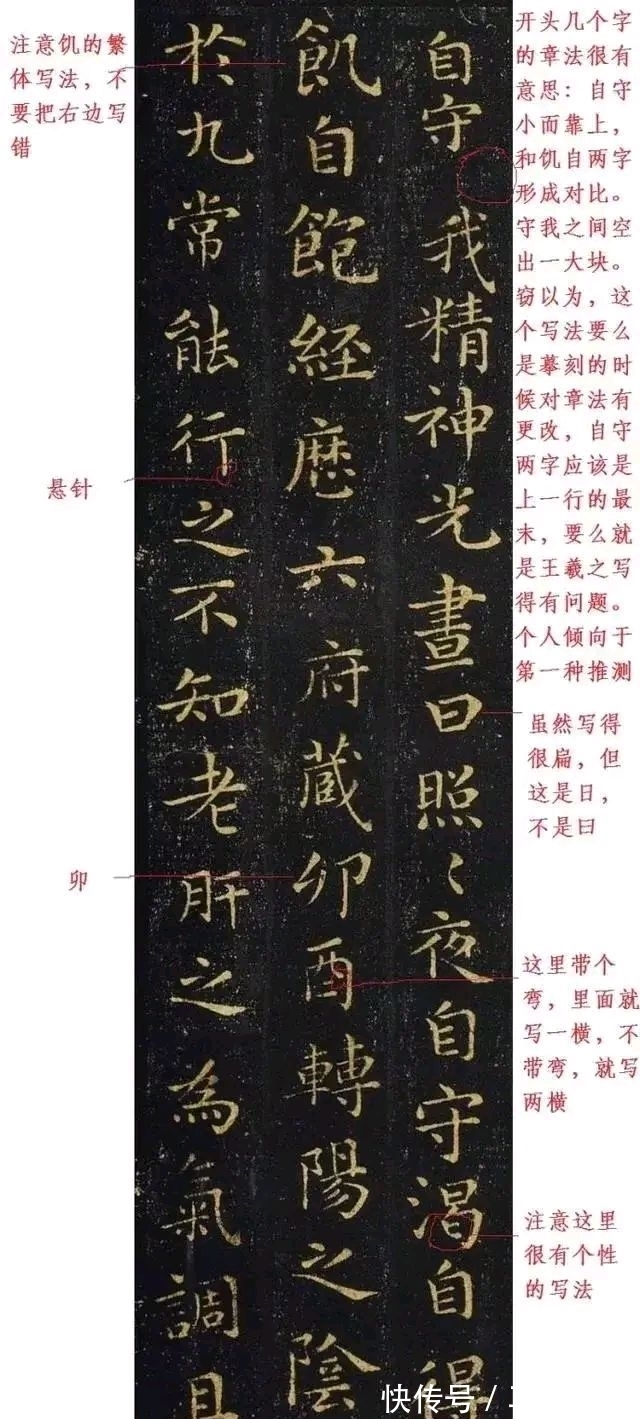 注意饥的繁
体写法，不
要把右边写
错
开头几个字
的章法很有
意思：自守
小而靠上，
和饥自两字
形成对比。
守我之间空
出一大块。
窃以为，这
个写法要么
是摹刻的时
候对章法有
更改，自守
两字应该是
上一行的最
末，要么就
是王羲之写
得有问题。
个人倾向于
第一种推测
自守我精神光晝日照〻夜自守渴自得
飢自飽經歷六府藏卯酉轉陽之陰
於九常能行之不知老肝之為氣調且
悬针
虽然写得
很扁，但
这是日，
不是曰
卯
这里带个
弯，里面就
写一横，不
带弯，就写
两横
注意这里
很有个性
的写法
快传号 /